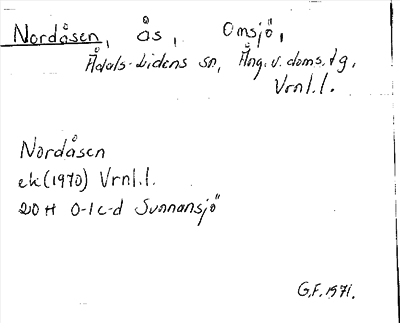 Nordåsen, ås, Omsjö,
Ådals-Lidens sn, Ång. v. doms. tg,
Vrnl.l.
Nordåsen
ek (1970) Vrnl.l.
20 H 0-1 c-d Sunnansjö
G.F. 1971.